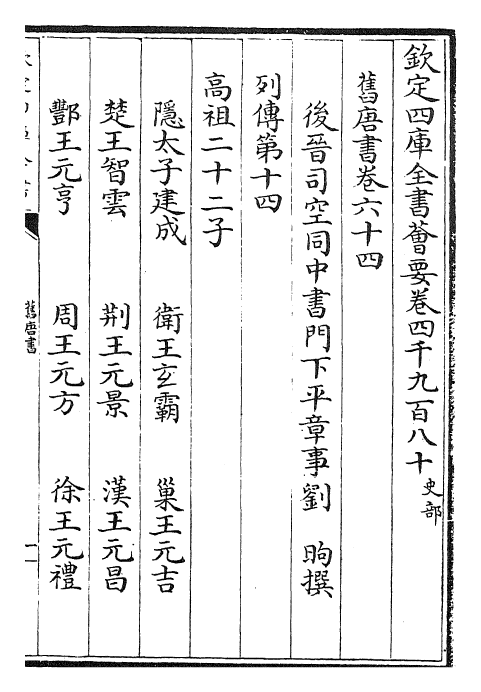 欽定四庫全書薈要卷四千九百八十 史部
舊唐書卷六十四
後晉司空同中書門下平章事劉 昫撰
列傳第十四
高祖二十二子
隱太子建成 衛王玄霸 巢王元吉
楚王智雲 荆王元景 漢王元昌
酆王元亨 周王元方 徐王元禮
舊唐書
一